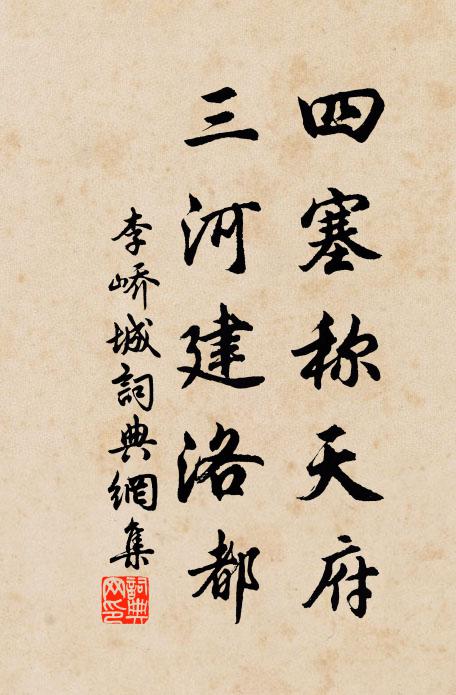 四塞称天府
三河建洛都
李峤城詞典網集
詞典网印